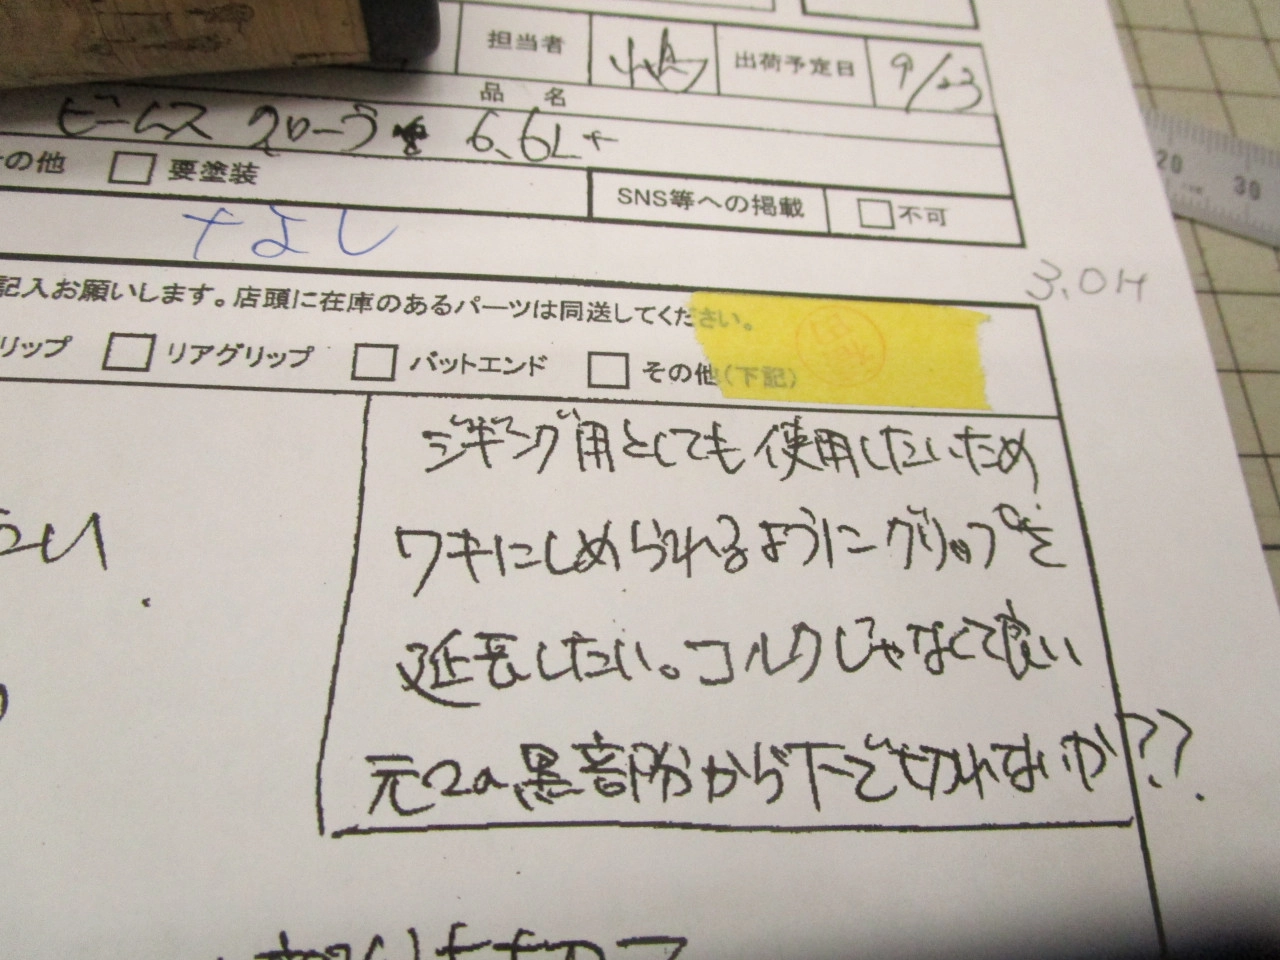 担当者 出荷予定日 9/23
品 名
ビームス クローラ 6.6L+
の他 □ 要塗装 SNS等への掲載 □ 不可
ナよし
3.0H
記入お願いします。店頭に在庫のあるパーツは同送してください。
リップ □ リアグリップ □ バットエンド □ その他(下記)
ジギング用としても使用したいため
ワキにしめられるようにグリップを
延長したい。コルクじゃなくて良い
元々の黒部分から下で切れないか??
20 30